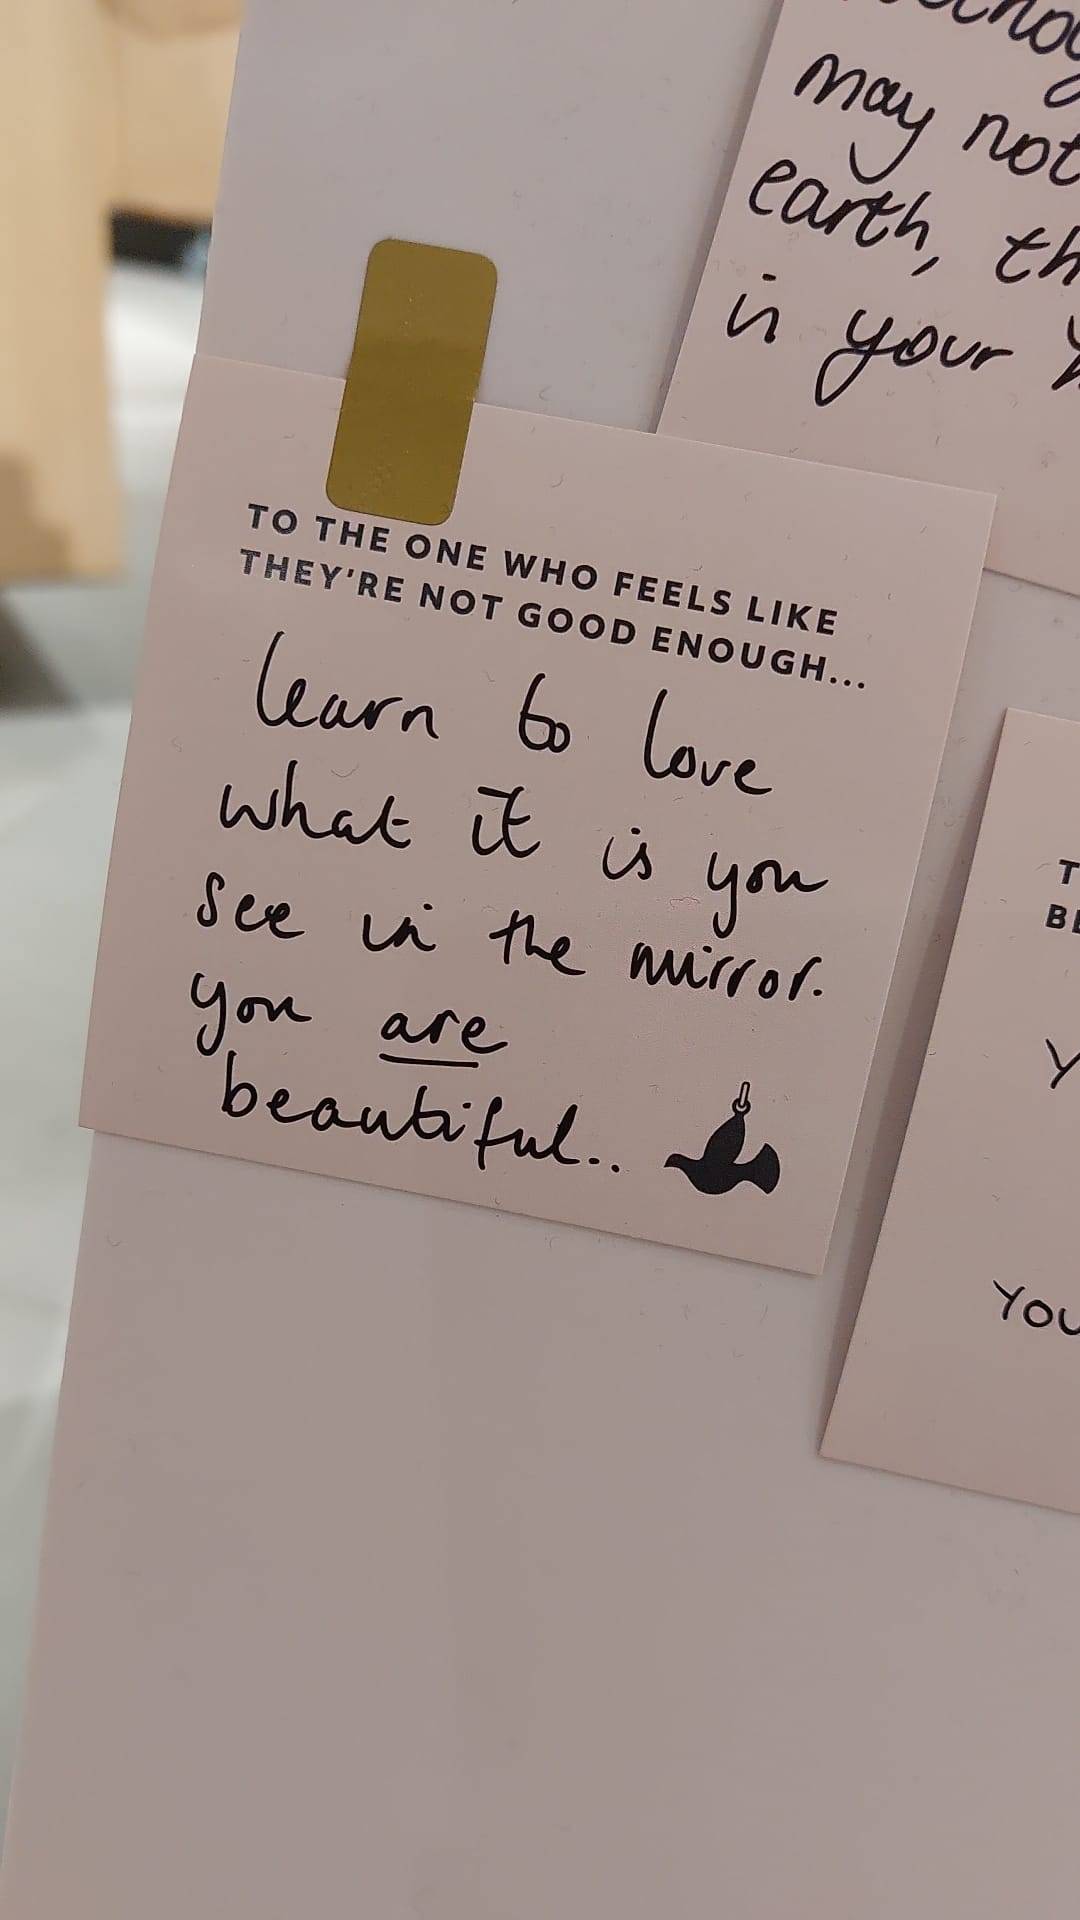 may not
earth, th
in your
TO THE ONE WHO FEELS LIKE
THEY'RE NOT GOOD ENOUGH...
learn to love
what it is you
see in the mirror.
you are
beautiful..
T
BE
Y
YOU